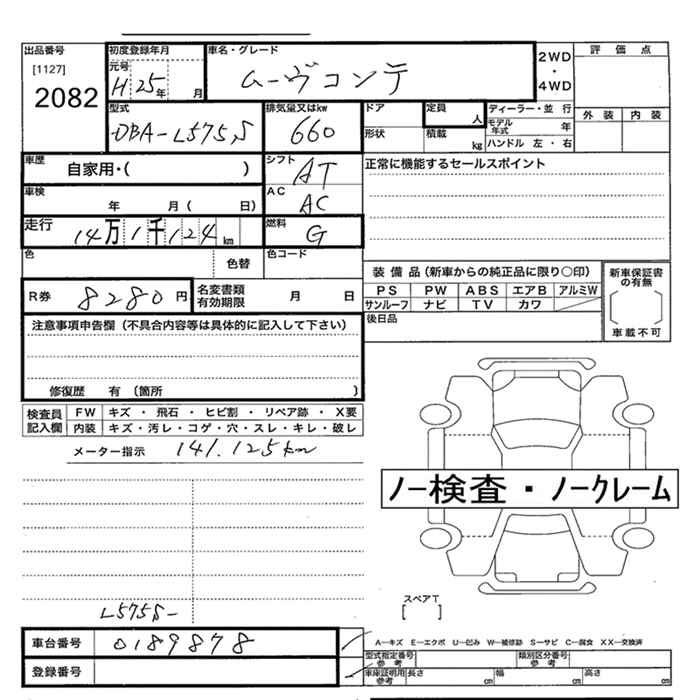 出品番号
[1127]
2082
初度登録年月
元号
H 25年 月
車名・グレード
ムーヴコンテ
2WD
・
4WD
評価点
外装 内装
型式
DBA-L575S
排気量又はkw
660
ドア
形状
定員
人
積載
kg
ディーラー・並行
モデル年式 年
ハンドル 左・右
車歴
自家用・( )
シフト
AT
正常に機能するセールスポイント
車検
年 月( 日)
AC
AC
走行
14万1千124km
燃料
G
色
色替
色コード
R券 8280円
名変書類有効期限 月 日
装備品(新車からの純正品に限り○印)
PS PW ABS エアB アルミW
サンルーフ ナビ TV カワ
新車保証書の有無
車載不可
後日品
注意事項申告欄(不具合内容等は具体的に記入して下さい)
修復歴 有(箇所 )
検査員記入欄
FW キズ・飛石・ヒビ割・リペア跡・X要
内装 キズ・汚レ・コゲ・穴・スレ・キレ・破レ
メーター指示 141.125km
ノー検査・ノークレーム
スペアT
[ ]
L575S-
車台番号 0189878
登録番号
A―キズ E―エクボ U―凹み W―補修跡 S―サビ C―腐食 XX―交換済
型式指定番号 参考
類別区分番号 参考
車庫証明用 参考 長さ cm 幅 cm 高さ cm